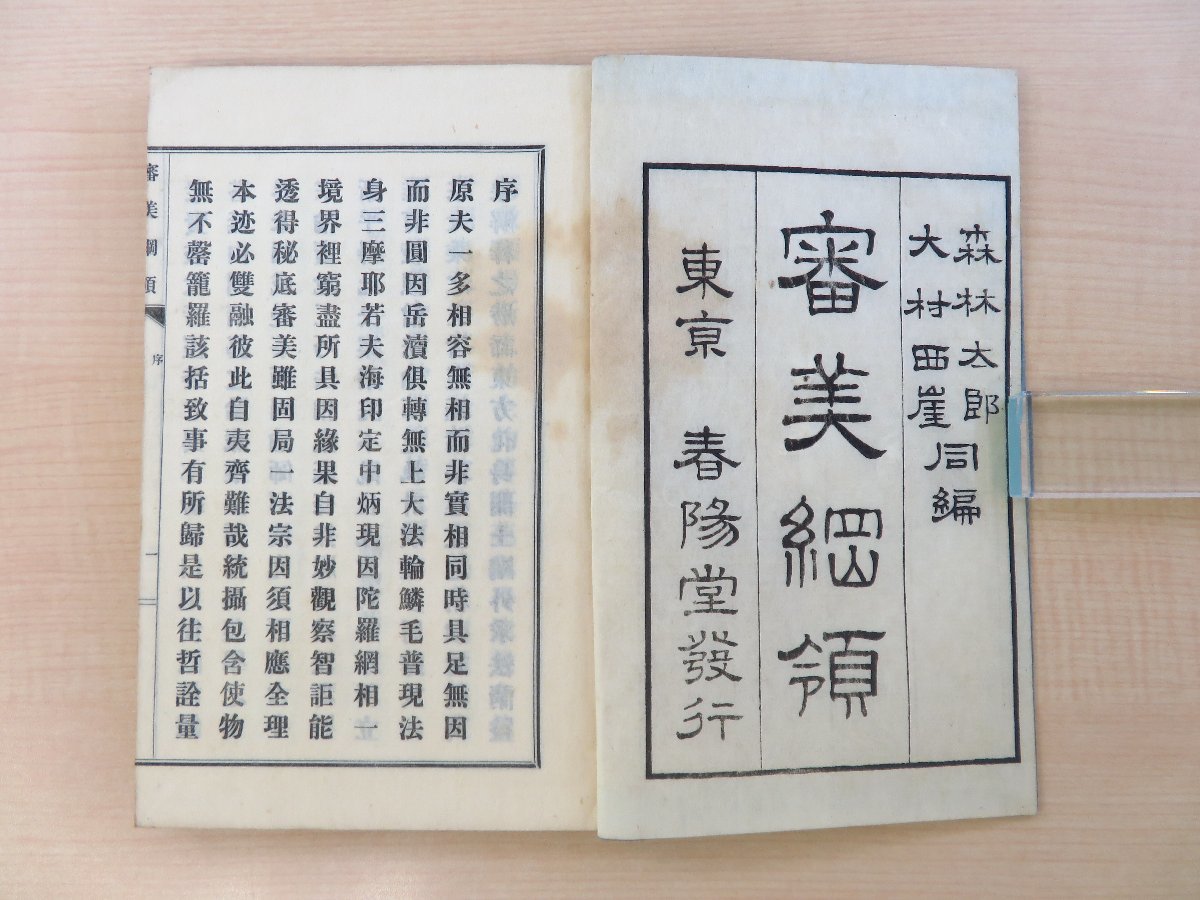 森林太郎
大村西崖
同編
審美綱領
東亰 春陽堂發行
序
原夫一多相容無相而非實相同時具足無因
而非圓因岳瀆俱轉無上大法輪鱗毛普現法
身三摩耶若夫海印定中炳現因陀羅網相一
境界裡窮盡所具因緣果自非妙觀察智詎能
透得秘底審美雖固局一法宗因須相應全理
本迹必雙融彼此自夷齊難哉統攝包含使物
無不罄籠羅該括致事有所歸是以往哲詮量
審美綱領 序 一